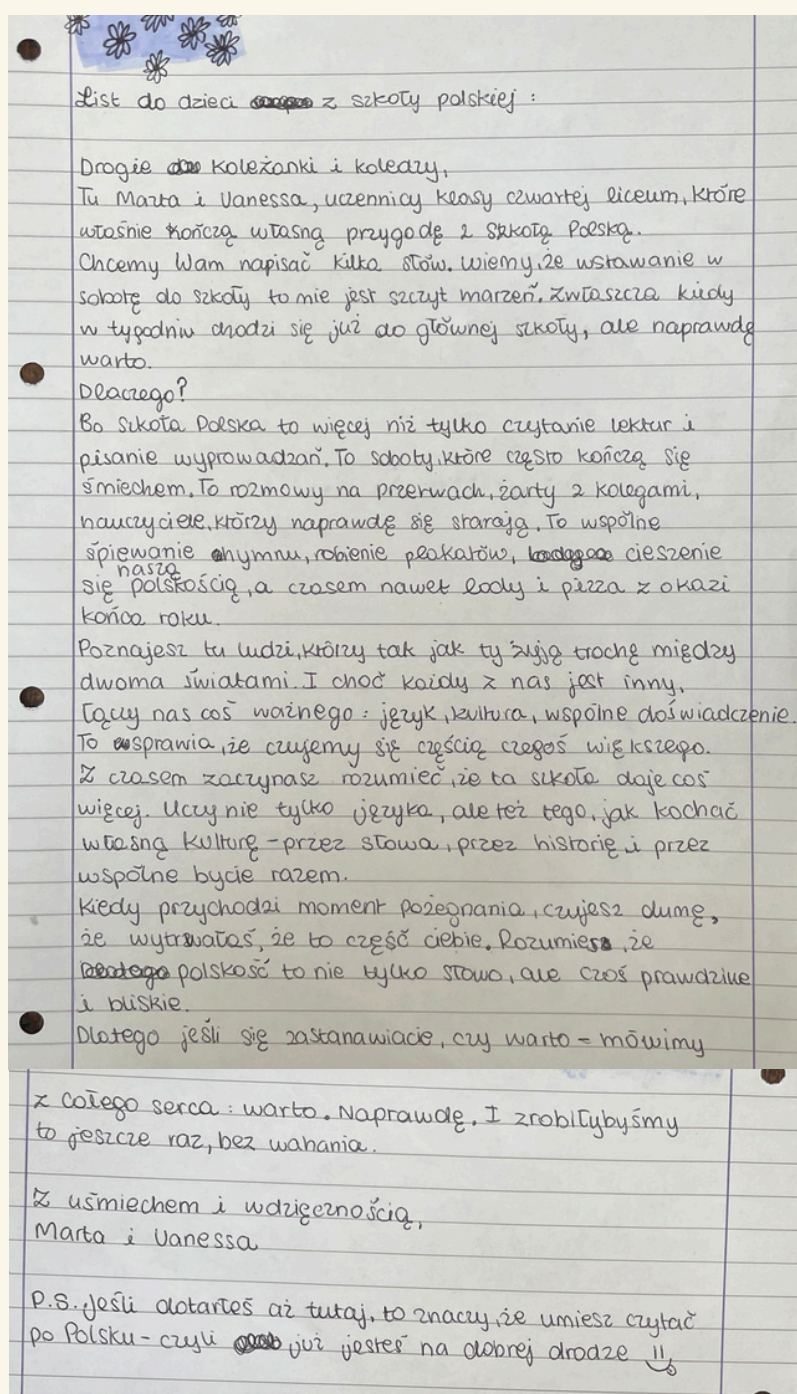 List do dzieci z szkoły polskiej :
Drogie koleżanki i koledzy,
Tu Marta i Vanessa, uczennicy klasy czwartej liceum, które
właśnie kończą własną przygodę z szkołą Polską.
Chcemy Wam napisać kilka słów. Wiemy, że wstawanie w
sobotę do szkoły to nie jest szczyt marzeń. Zwłaszcza kiedy
w tygodniu chodzi się już do głównej szkoły, ale naprawdę
warto.
Dlaczego?
Bo Szkoła Polska to więcej niż tylko czytanie lektur i
pisanie wyprowadzań. To soboty, które często kończą się
śmiechem. To rozmowy na przerwach, żarty z kolegami,
nauczyciele, którzy naprawdę się starają. To wspólne
śpiewanie hymnu, robienie plakatów, cieszenie
się naszą polskością, a czasem nawet lody i pizza z okazi
końca roku.
Poznajesz tu ludzi, którzy tak jak ty żyją trochę między
dwoma światami. I choć każdy z nas jest inny,
łączy nas coś ważnego : język, kultura, wspólne doświadczenie.
To sprawia, że czujemy się częścią czegoś większego.
Z czasem zaczynasz rozumieć, że ta szkoła daje coś
więcej. Uczy nie tylko języka, ale też tego, jak kochać
własną kulturę - przez słowa, przez historię i przez
wspólne bycie razem.
Kiedy przychodzi moment pożegnania, czujesz dumę,
że wytrwałaś, że to część ciebie. Rozumiesz, że
polskość to nie tylko słowo, ale czoś prawdziwe
i bliskie.
Dlatego jeśli się zastanawiacie, czy warto - mówimy
z całego serca : warto. Naprawdę. I zrobiłybyśmy
to jeszcze raz, bez wahania.
Z uśmiechem i wdzięcznością,
Marta i Vanessa
P.S. Jeśli dotarłeś aż tutaj, to znaczy, że umiesz czytać
po Polsku - czyli już jesteś na dobrej drodze